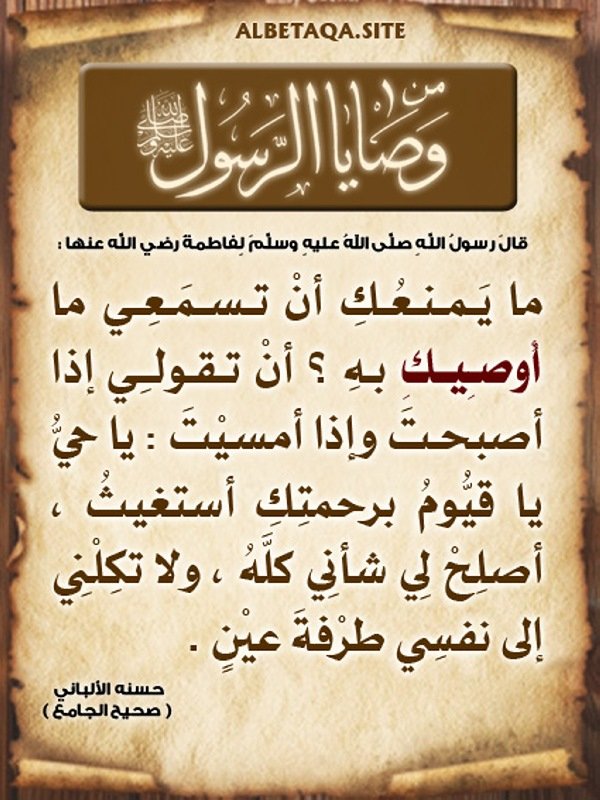 ALBETAQA.SITE
من وصايا الرسول ﷺ
قالَ رسولُ اللهِ صلَّى اللهُ عليهِ وسلَّمَ لِفاطمةَ رضي الله عنها :
ما يَمنعُكِ أنْ تسمَعِي ما
أُوصِيكِ بهِ ؟ أنْ تقولِي إذا
أصبحتَ وإذا أمسيْتَ : يا حيُّ
يا قيُّومُ برحمتِكِ أستغيثُ ،
أصلِحْ لِي شأنِي كلَّهُ ، ولا تكِلْنِي
إلى نفسِي طرْفةَ عيْنٍ .
حسنه الألباني
( صحيح الجامع )